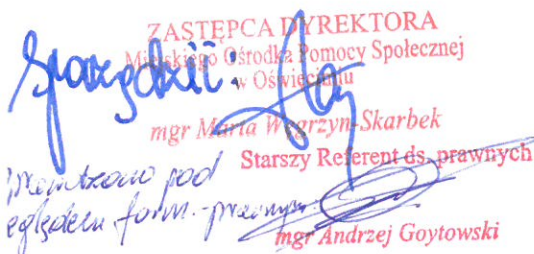 ZASTĘPCA DYREKTORA
Miejskiego Ośrodka Pomocy Społecznej
w Oświęcimiu
Sporządził:
mgr Marta Węgrzyn-Skarbek
Starszy Referent ds. prawnych
pod
względem form.-prawnym
mgr Andrzej Goytowski